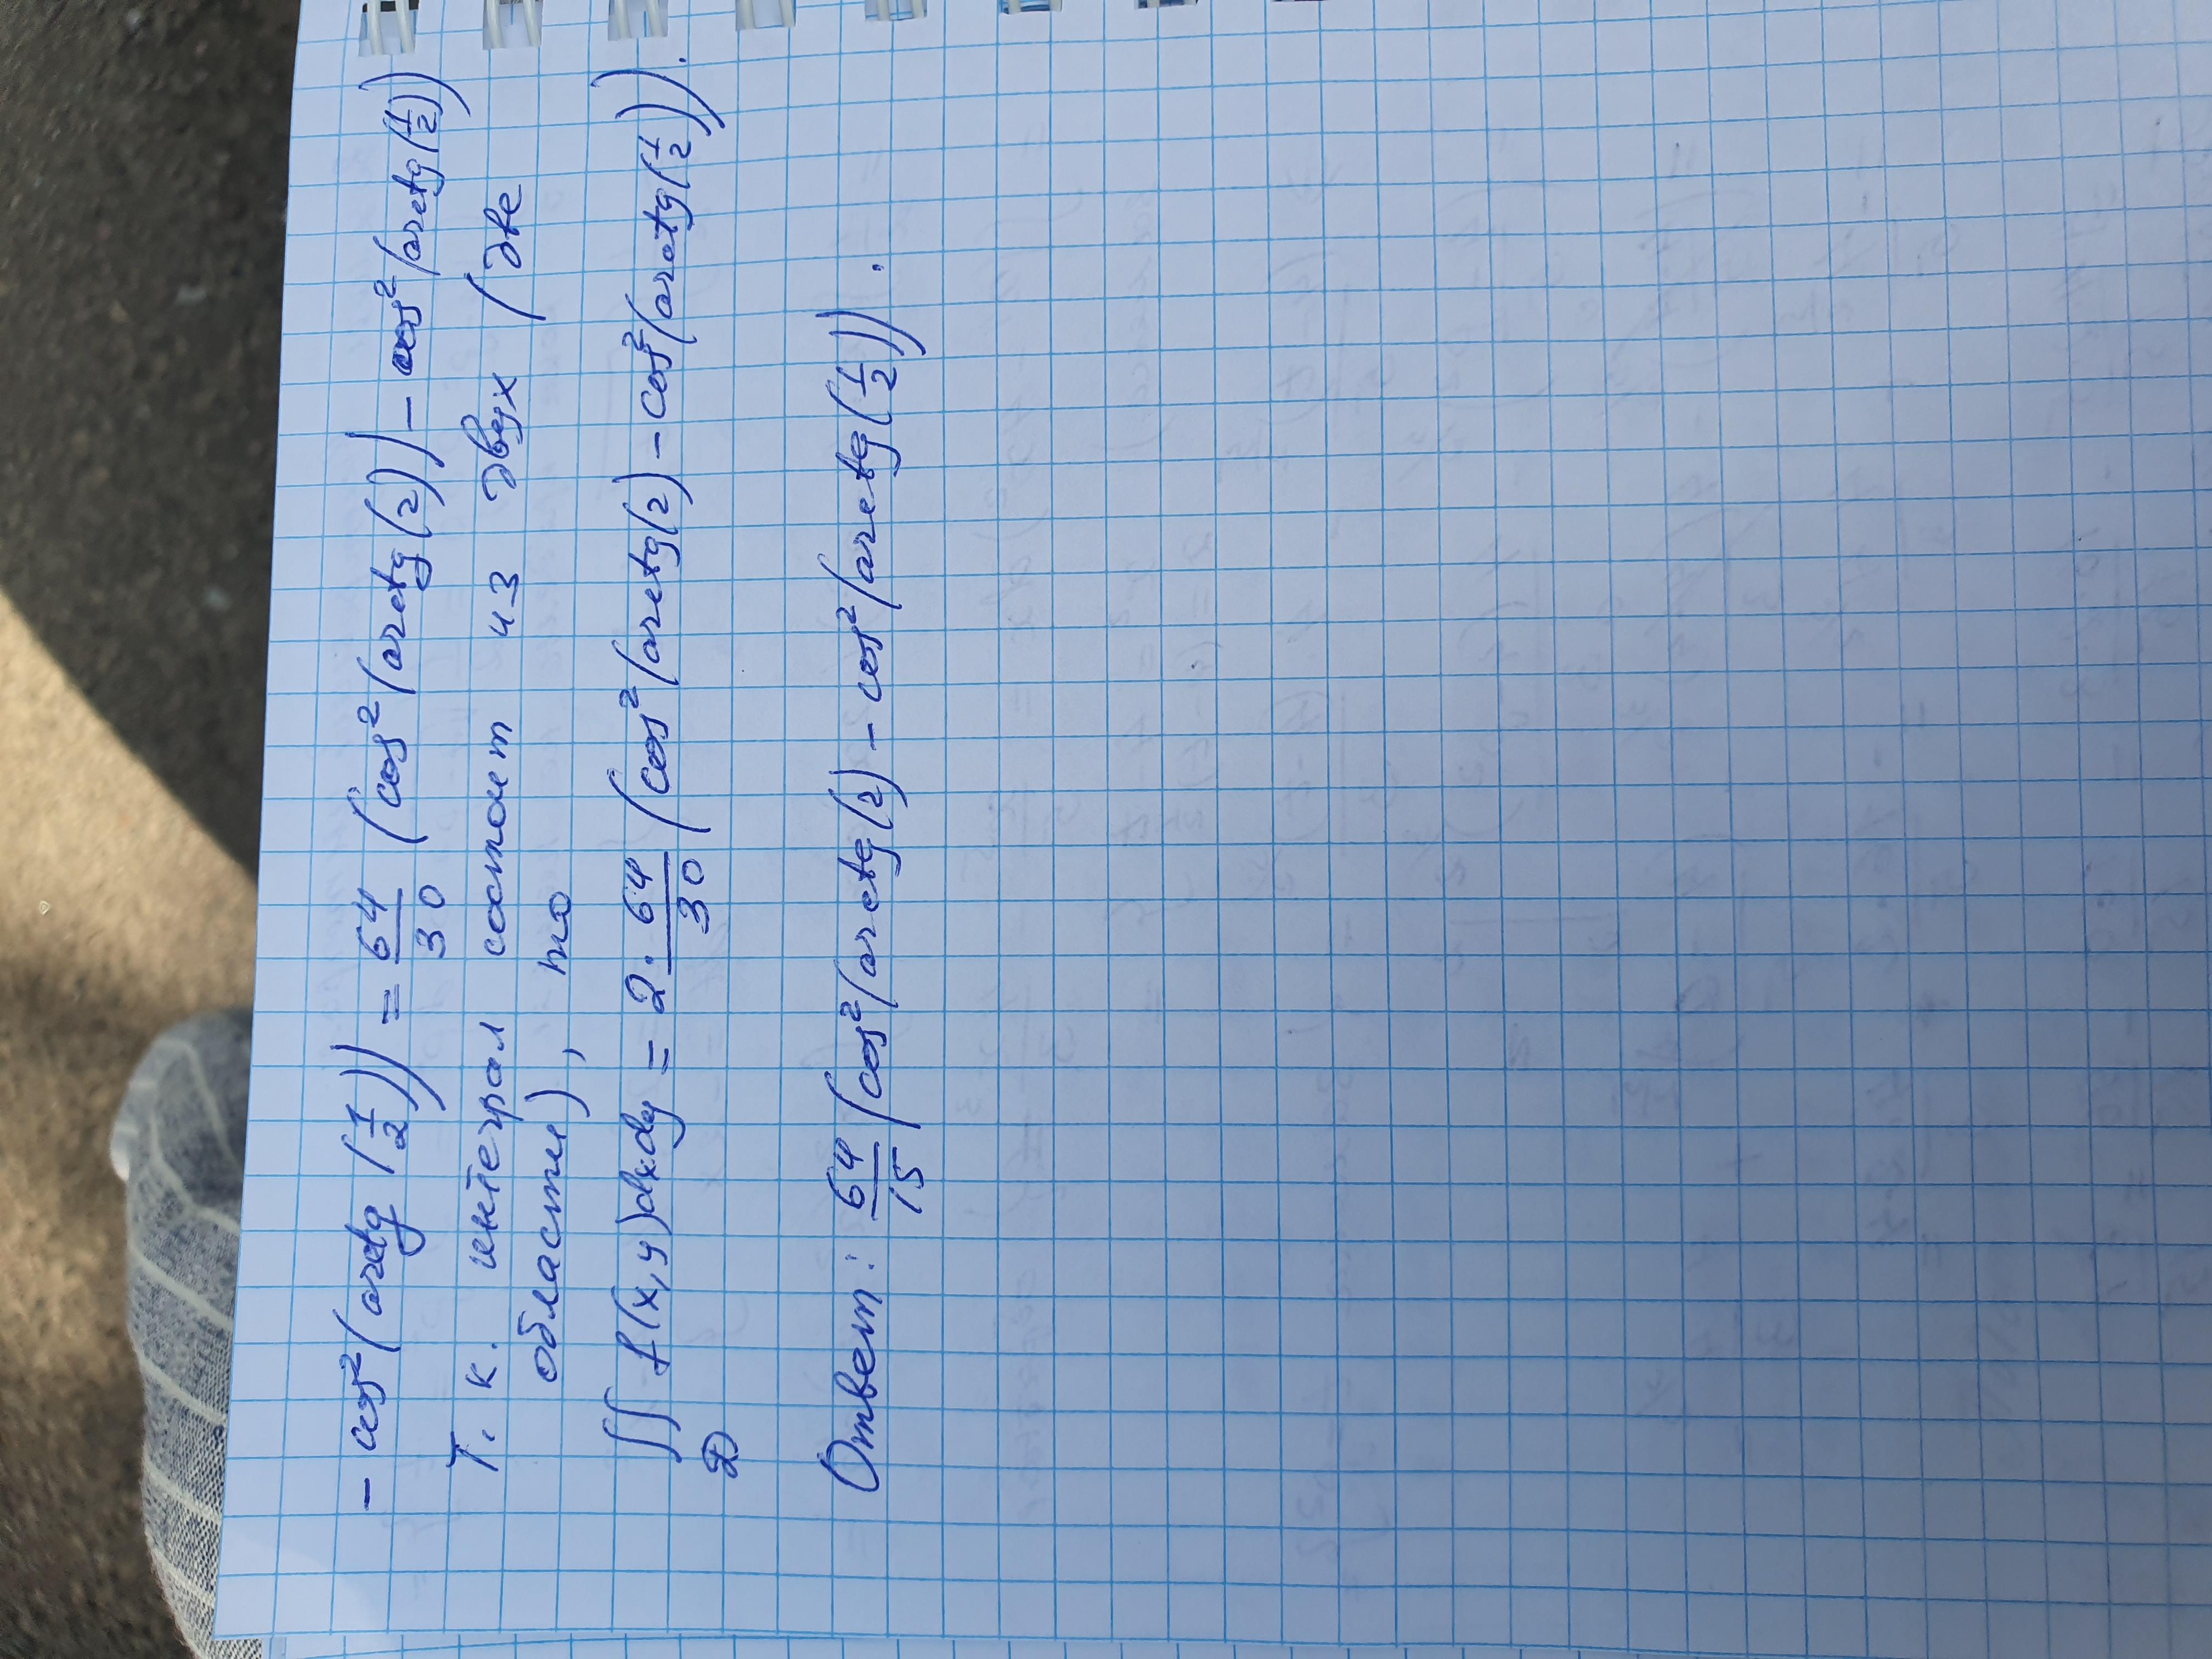 - cos²(arctg(1/2))) = 64/30 (cos²(arctg(2)) - cos²(arctg(1/2))
Т. к. интеграл состоит из двух (две
области), то
∬_D f(x,y)dxdy = 2 · 64/30 (cos²(arctg(2) - cos²(arctg(1/2))).
Ответ: 64/15 (cos²(arctg(2) - cos²(arctg(1/2))).